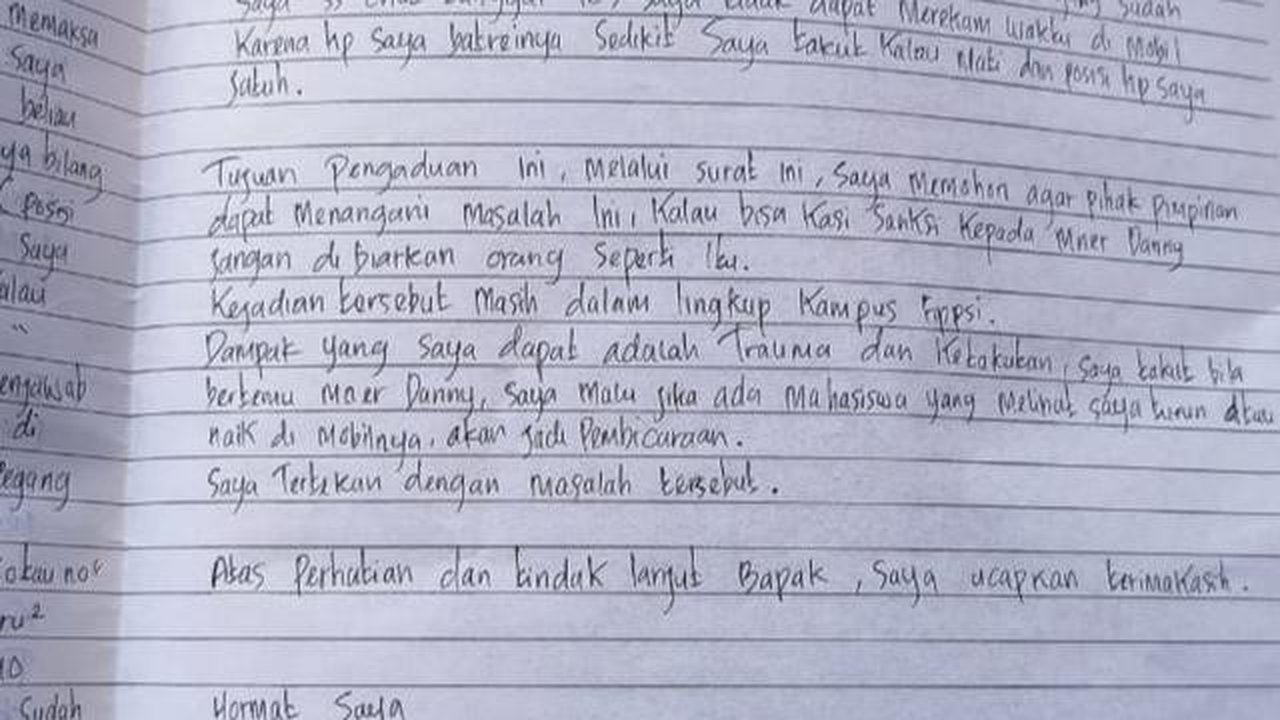 memaksa
Saya
beliau
ya bilang
posisi
Saya
alau
"
engawab
di
Pegang
ru²
10
Sudah
Saya tidak dapat Merekam waktu di Mobil
Karena hp Saya batreinya Sedikit Saya takut Kalau Mati dan posisi hp saya
Jatuh.
Tujuan Pengaduan Ini, Melalui surat Ini, Saya Memohon agar pihak Pimpinan
dapat Menangani Masalah Ini, Kalau bisa Kasi Sanksi Kepada Mner Danny
jangan di biarkan orang Seperti Itu.
Kejadian tersebut Masih dalam lingkup Kampus Fippsi.
Dampak yang Saya dapat adalah Trauma dan Ketakutan, saya takut bila
bertemu Mner Danny, Saya Malu jika ada Mahasiswa yang Melihat saya turun atau
naik di Mobilnya, akan jadi Pembicaraan.
Saya Tertekan dengan Masalah tersebut.
Atas Perhatian dan tindak lanjut Bapak, Saya ucapkan terimakasih.
Hormat Saya